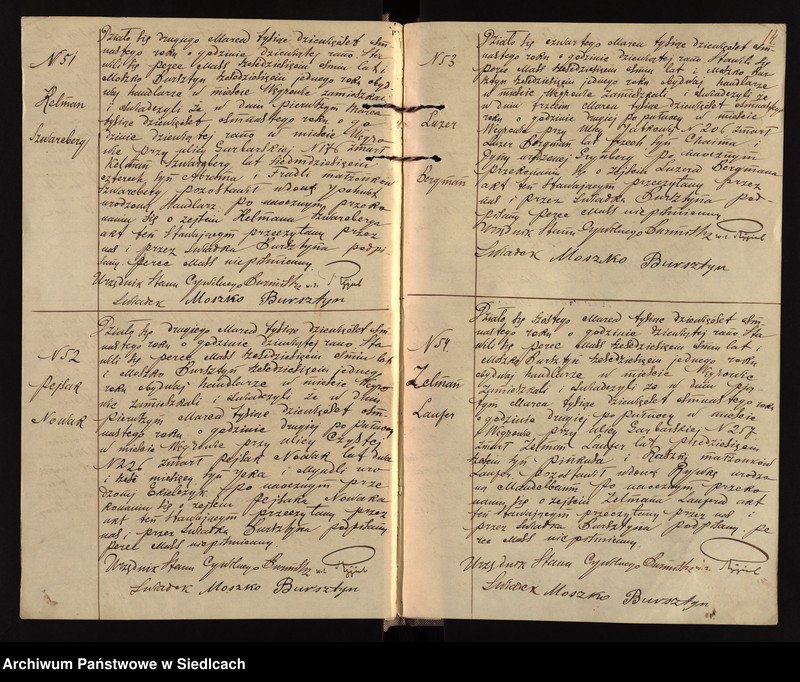 N 51
Helman
Szwarcberg
Działo się drugiego Marca tysiąc dziewięćset ośm-
nastego roku o godzinie dziewiątej rano Sta-
wili się Perec Mass sześćdziesięciu ośmiu lat i
Moszko Bursztyn sześćdziesięciu jednego roku obydwaj
handlarze w mieście Węgrowie zamieszkali
i świadczyli że w dniu pierwszym Marca
tysiąc dziewięćset ośmnastego roku o go
dzinie dziewiątej rano w mieście Węgro
wie przy ulicy Garbarskiej N 176 zmarł
Helman Szwarcberg lat siedmdziesięciu
czterech syn Abrama i Fradli małżonków
Szwarcberg pozostawił wdowę
urodzoną Handlarz Po naocznym przeko
naniu się o zejściu Helmana Szwarcberga
akt ten stawającym przeczytany przez
nas i przez świadka Bursztyna podpi-
sany. Perec Mass niepiśmienny.
Urzędnik Stanu Cywilnego Burmistrz
Świadek Moszko Bursztyn
N 52
Pejsak
Nowak
Działo się drugiego Marca tysiąc dziewięćset ośm
nastego roku o godzinie dziewiątej rano Sta
wili się Perec Mass sześćdziesięciu ośmiu lat
i Moszko Bursztyn sześćdziesięciu jednego
roku obydwaj handlarze w mieście Węgro
wie zamieszkali i świadczyli że w dniu
pierwszym Marca tysiąc dziewięćset ośm
nastego roku o godzinie drugiej po północy
w mieście Węgrowie przy ulicy Czystej
N 226 zmarł Pejsak Nowak lat dwa
i sześć miesięcy syn Icka i Myndli uro
dzonej Po naocznym prze
konaniu się o zejściu Pejsaka Nowaka
akt ten stawającym przeczytany przez
nas i przez świadka Bursztyna podpisany
Perec Mass niepiśmienny.
Urzędnik Stanu Cywilnego Burmistrz
Świadek Moszko Bursztyn
14
N 53
Luzer
Bergman
Działo się czwartego Marca tysiąc dziewięćset ośm
nastego roku o godzinie dziewiątej rano Stawili się
Perec Mass sześćdziesięciu ośmiu lat i Moszko Bur
sztyn sześćdziesięciu jednego roku obydwaj handlarze
w mieście Węgrowie zamieszkali i świadczyli że
w dniu trzecim Marca tysiąc dziewięćset ośmnastego
roku o godzinie drugiej po północy w mieście
Węgrowie przy ulicy Jatkowej N 206 zmarł
Luzer Bergman lat trzech syn Chaima i
Dyny urodzonej Grynberg Po naocznym
przekonaniu się o zejściu Luzera Bergmana
akt ten stawającym przeczytany przez
nas i przez świadka Bursztyna pod-
pisany Perec Mass niepiśmienny
Urzędnik Stanu Cywilnego Burmistrz
Świadek Moszko Bursztyn
N 54.
Zelman
Laufer
Działo się szóstego Marca tysiąc dziewięćset ośm
nastego roku o godzinie dziewiątej rano Sta
wili się Perec Mass sześćdziesięciu ośmiu lat i
Moszko Bursztyn sześćdziesięciu jednego roku
obydwaj handlarze w mieście Węgrowie
zamieszkali i świadczyli że w dniu pią-
tym Marca tysiąc dziewięćset ośmnastego roku
o godzinie drugiej po północy w mieście
Węgrowie przy ulicy Garbarskiej N 257
zmarł Zelman Laufer lat pięćdziesięciu
syn Pinkusa i małżonków
Laufer pozostawił wdowę Rywkę urodzo
ną Mandelbaum Po naocznym przeko
naniu się o zejściu Zelmana Laufera akt
ten stawającym przeczytany przez nas i
przez świadka Bursztyna podpisany. Pe
rec Mass niepiśmienny.
Urzędnik Stanu Cywilnego Burmistrz
Świadek Moszko Bursztyn
Archiwum Państwowe w Siedlcach